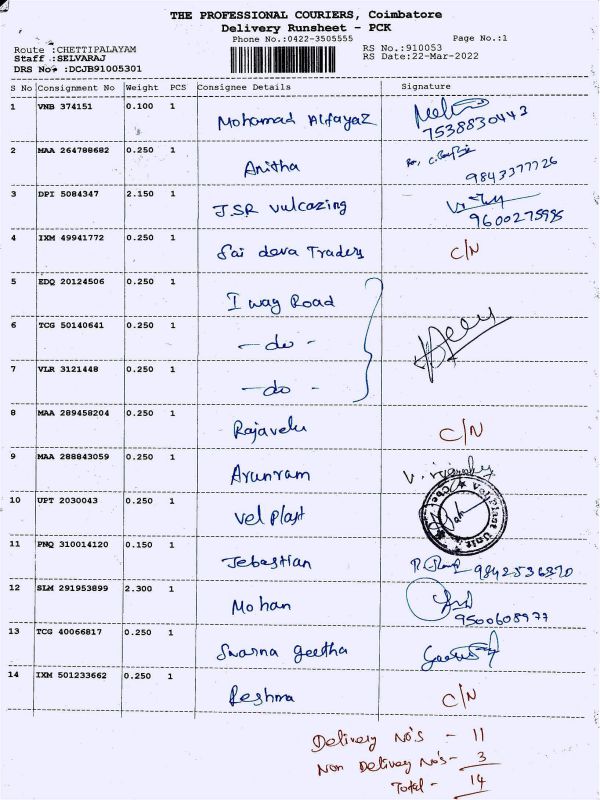 THE PROFESSIONAL COURIERS, Coimbatore
Delivery Runsheet - PCK
Phone No.:0422-3505555 Page No.:1
Route :CHETTIPALAYAM RS No.:910053
Staff :SELVARAJ RS Date:22-Mar-2022
DRS No :DCJB91005301
S No Consignment No Weight PCS Consignee Details Signature
1 VNB 374151 0.100 1 Mohamad Alfayaz
7538830443
2 MAA 264788682 0.250 1 Anitha
9843377726
3 DPI 5084347 2.150 1 J.SR Vulcazing
9600275985
4 IXM 49941772 0.250 1 Sai deva Traders C/N
5 EDQ 20124506 0.250 1 I way Road
6 TCG 50140641 0.250 1 - do -
7 VLR 3121448 0.250 1 - do -
8 MAA 289458204 0.250 1 Rajavelu C/N
9 MAA 288843059 0.250 1 Arunram
10 UPT 2030043 0.250 1 Vel Plast Vel Plast Unit
11 PNQ 310014120 0.150 1 Jebastian 9842536370
12 SLM 291953899 2.300 1 Mohan
9500608977
13 TCG 40066817 0.250 1 Swarna geetha
14 IXM 501233662 0.250 1 Reshma C/N
Delivery No's - 11
Non Delivery No's - 3
Total - 14